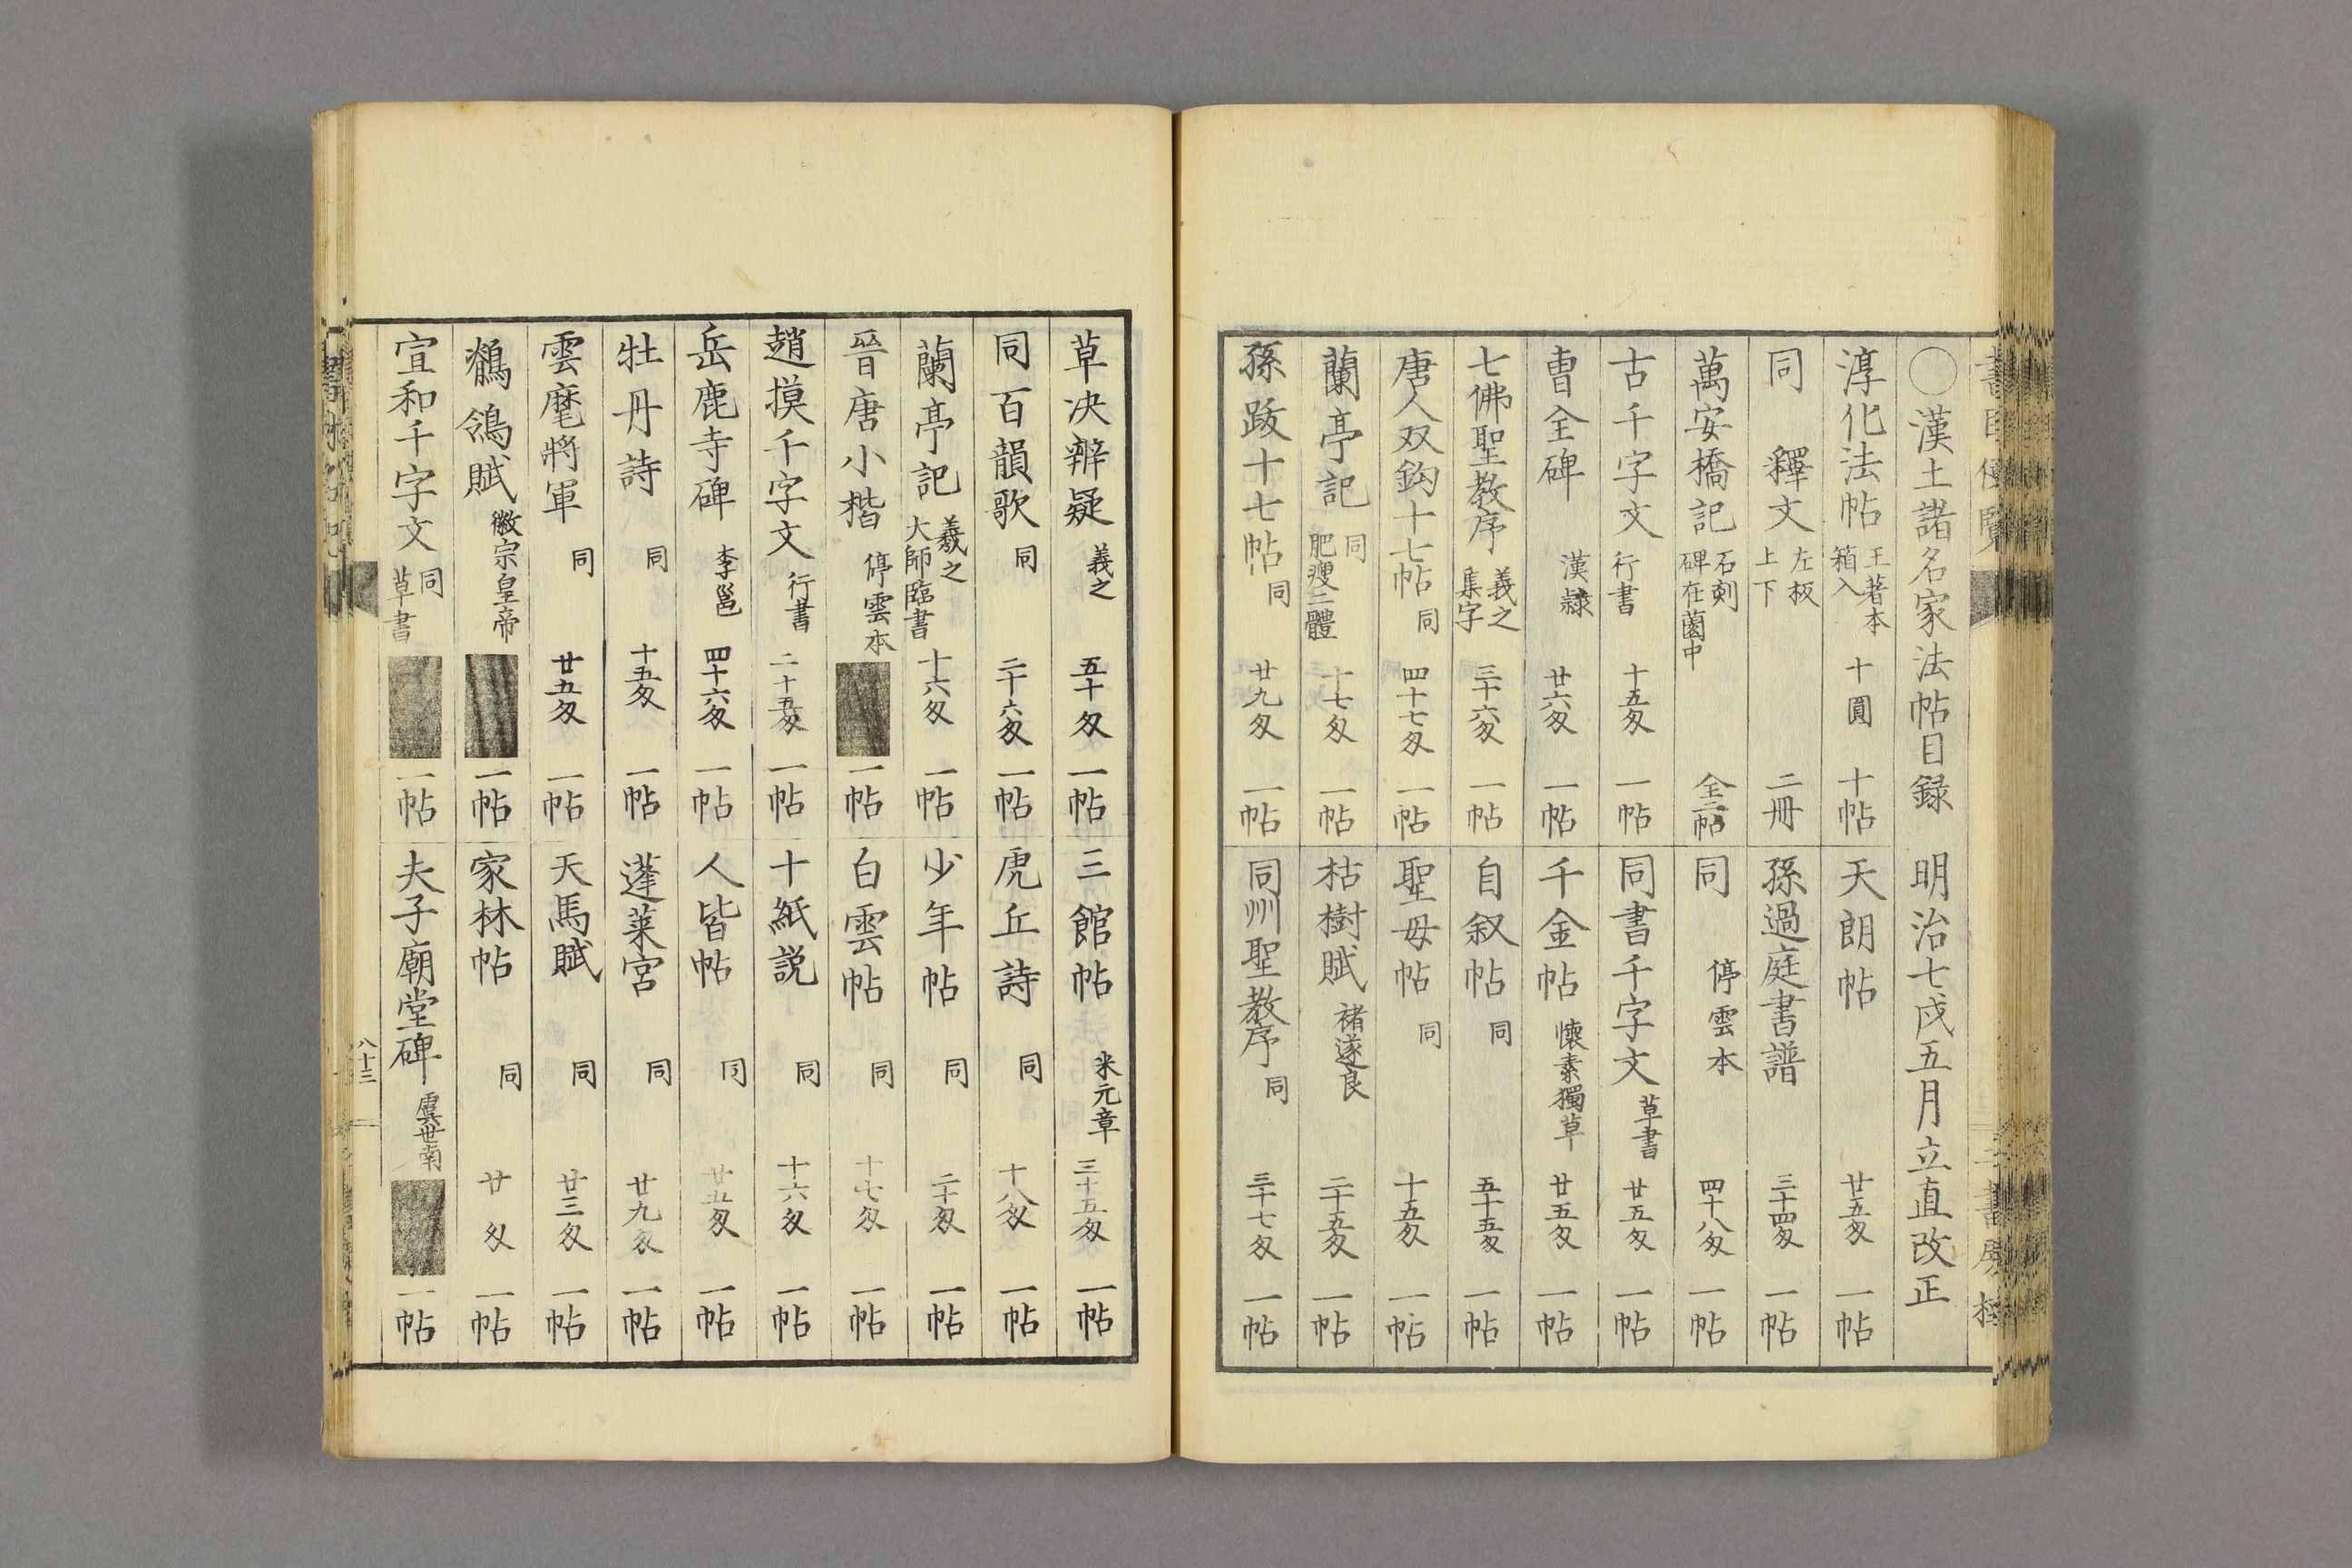 〇漢土諸名家法帖目録 明治七戌五月立直改正
淳化法帖 王著本 箱入 十圓 十帖
同 釋文 左板 上下 二冊
萬安橋記 石刻 碑在薗中 全二帖
古千字文 行書 十五匁 一帖
曹全碑 漢隷 廿六匁 一帖
七佛聖教序 義之 集字 三十六匁 一帖
唐人双鈎十七帖 同 四十七匁 一帖
蘭亭記 同 肥瘦二體 十七匁 一帖
孫跋十七帖 同 廿九匁 一帖
天朗帖 廿五匁 一帖
孫過庭書譜 三十四匁 一帖
同 停雲本 四十八匁 一帖
同書千字文 草書 廿五匁 一帖
千金帖 懐素獨草 廿五匁 一帖
自叙帖 同 五十五匁 一帖
聖母帖 同 十五匁 一帖
枯樹賦 褚遂良 二十五匁 一帖
同州聖教序 同 三十七匁 一帖
草决辨疑 義之 五十匁 一帖
同百韻歌 同 二十六匁 一帖
蘭亭記 羲之 大師臨書 十六匁 一帖
晉唐小楷 停雲本 一帖
趙摸千字文 行書 二十五匁 一帖
岳鹿寺碑 李邕 四十六匁 一帖
牡丹詩 同 十五匁 一帖
雲麾將軍 同 廿五匁 一帖
鶺鴒賦 徽宗皇帝 一帖
宣和千字文 同 草書 一帖
三館帖 米元章 三十五匁 一帖
虎丘詩 同 十八匁 一帖
少年帖 同 二十匁 一帖
白雲帖 同 十七匁 一帖
十紙説 同 十六匁 一帖
人皆帖 同 廿五匁 一帖
蓬莱宮 同 廿九匁 一帖
天馬賦 同 廿三匁 一帖
家林帖 同 廿匁 一帖
夫子廟堂碑 虞世南 一帖
八十三